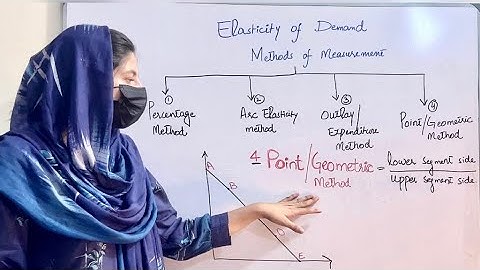 Elasticity of Demand
Methods of Measurement
① ② ③ ④
Percentage Method
Arc Elasticity method
Outlay/ Expenditure Method
Point/Geometric Method
4 Point/Geometric Method = lower segment side
upper segment side
A
B
D
E